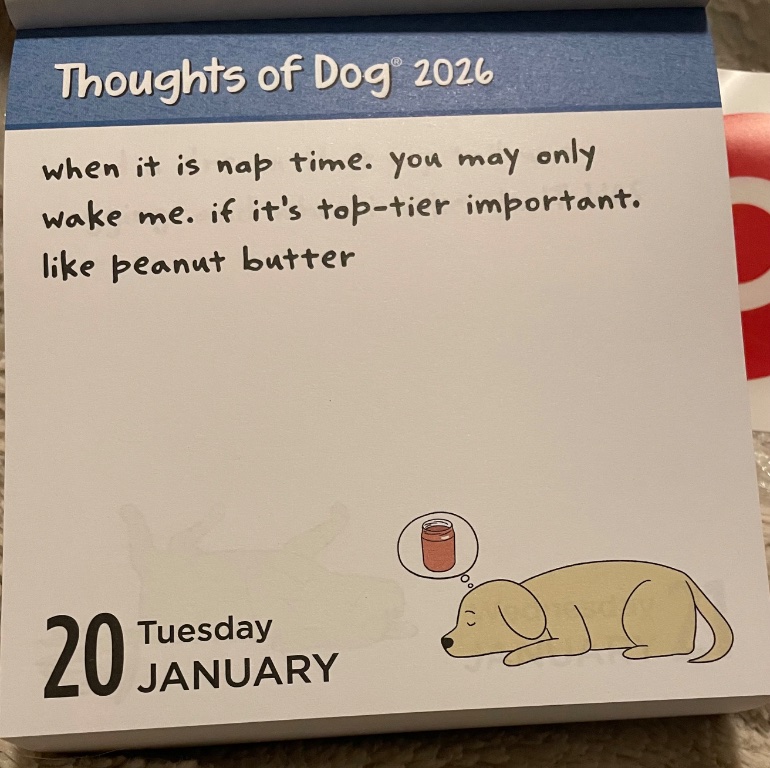 Thoughts of Dog® 2026
when it is nap time. you may only
wake me. if it's top-tier important.
like peanut butter
20
Tuesday
JANUARY